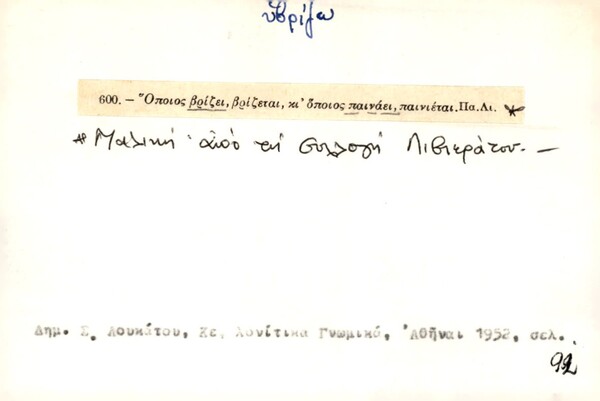 ὑβρίζω
600. – Ὅποιος βρίζει, βρίζεται, κι' ὅποιος παινάει, παινιέται. Πα.Λι. *
* Παλική ἀπό τή συλλογή Λιβιεράτου. –
Δημ. Σ. Λουκάτου, Κεφαλονίτικα Γνωμικά, Ἀθῆναι 1952, σελ.
92